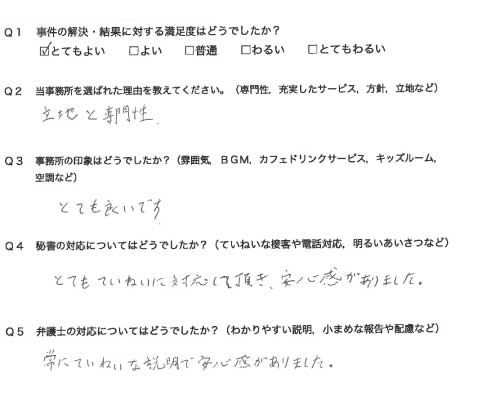 Q1 事件の解決・結果に対する満足度はどうでしたか？
☑とてもよい □よい □普通 □わるい □とてもわるい
Q2 当事務所を選ばれた理由を教えてください。（専門性，充実したサービス，方針，立地など）
立地と専門性．
Q3 事務所の印象はどうでしたか？（雰囲気，BGM，カフェドリンクサービス，キッズルーム，
空調など）
とても良いです
Q4 秘書の対応についてはどうでしたか？（ていねいな接客や電話対応，明るいあいさつなど）
とてもていねいに対応して頂き、安心感がありました。
Q5 弁護士の対応についてはどうでしたか？（わかりやすい説明，小まめな報告や配慮など）
常にていねいな説明で安心感がありました。